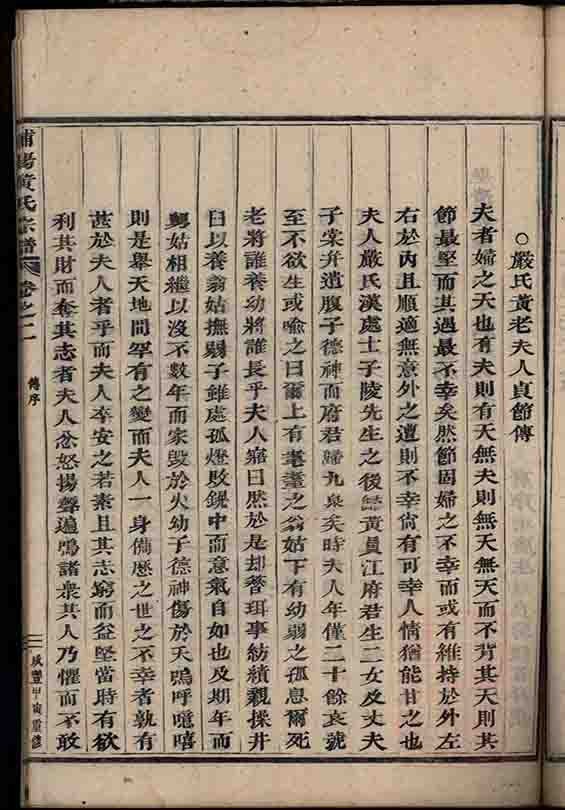 ○嚴氏黃老夫人貞節傳
夫者婦之天也有夫則有天無夫則無天無天而不背其天則其
節最堅而其遇最不幸矣然節固婦之不幸而或有維持於外左
右於內且順適無意外之遭則不幸尚有可幸人情猶能甘之也
夫人嚴氏漢處士子陵先生之後歸黃員江府君生二女及丈夫
子棠弁遺腹子德神而府君歸九泉矣時夫人年僅二十餘哀號
至不欲生或喻之曰爾上有耄耋之翁姑下有幼弱之孤息爾死
老將誰養幼將誰長乎夫人寤曰然於是却簪珥事紡績親操井
臼以養翁姑撫弱子雖處孤燈敗鏡中而意氣自如也及期年而
舅姑相繼以沒不數年而家毀於火幼子德神傷於天嗚呼噫嘻
則是舉天地間罕有之變而夫人一身備歷之世之不幸者孰有
甚於夫人者乎而夫人卒安之若素且其志窮而益堅當時有欲
利其財而奪其志者夫人忿怒揚聲遍鳴諸衆其人乃懼而不敢
浦陽黃氏宗譜
卷之二
傳序
咸豐甲寅重修